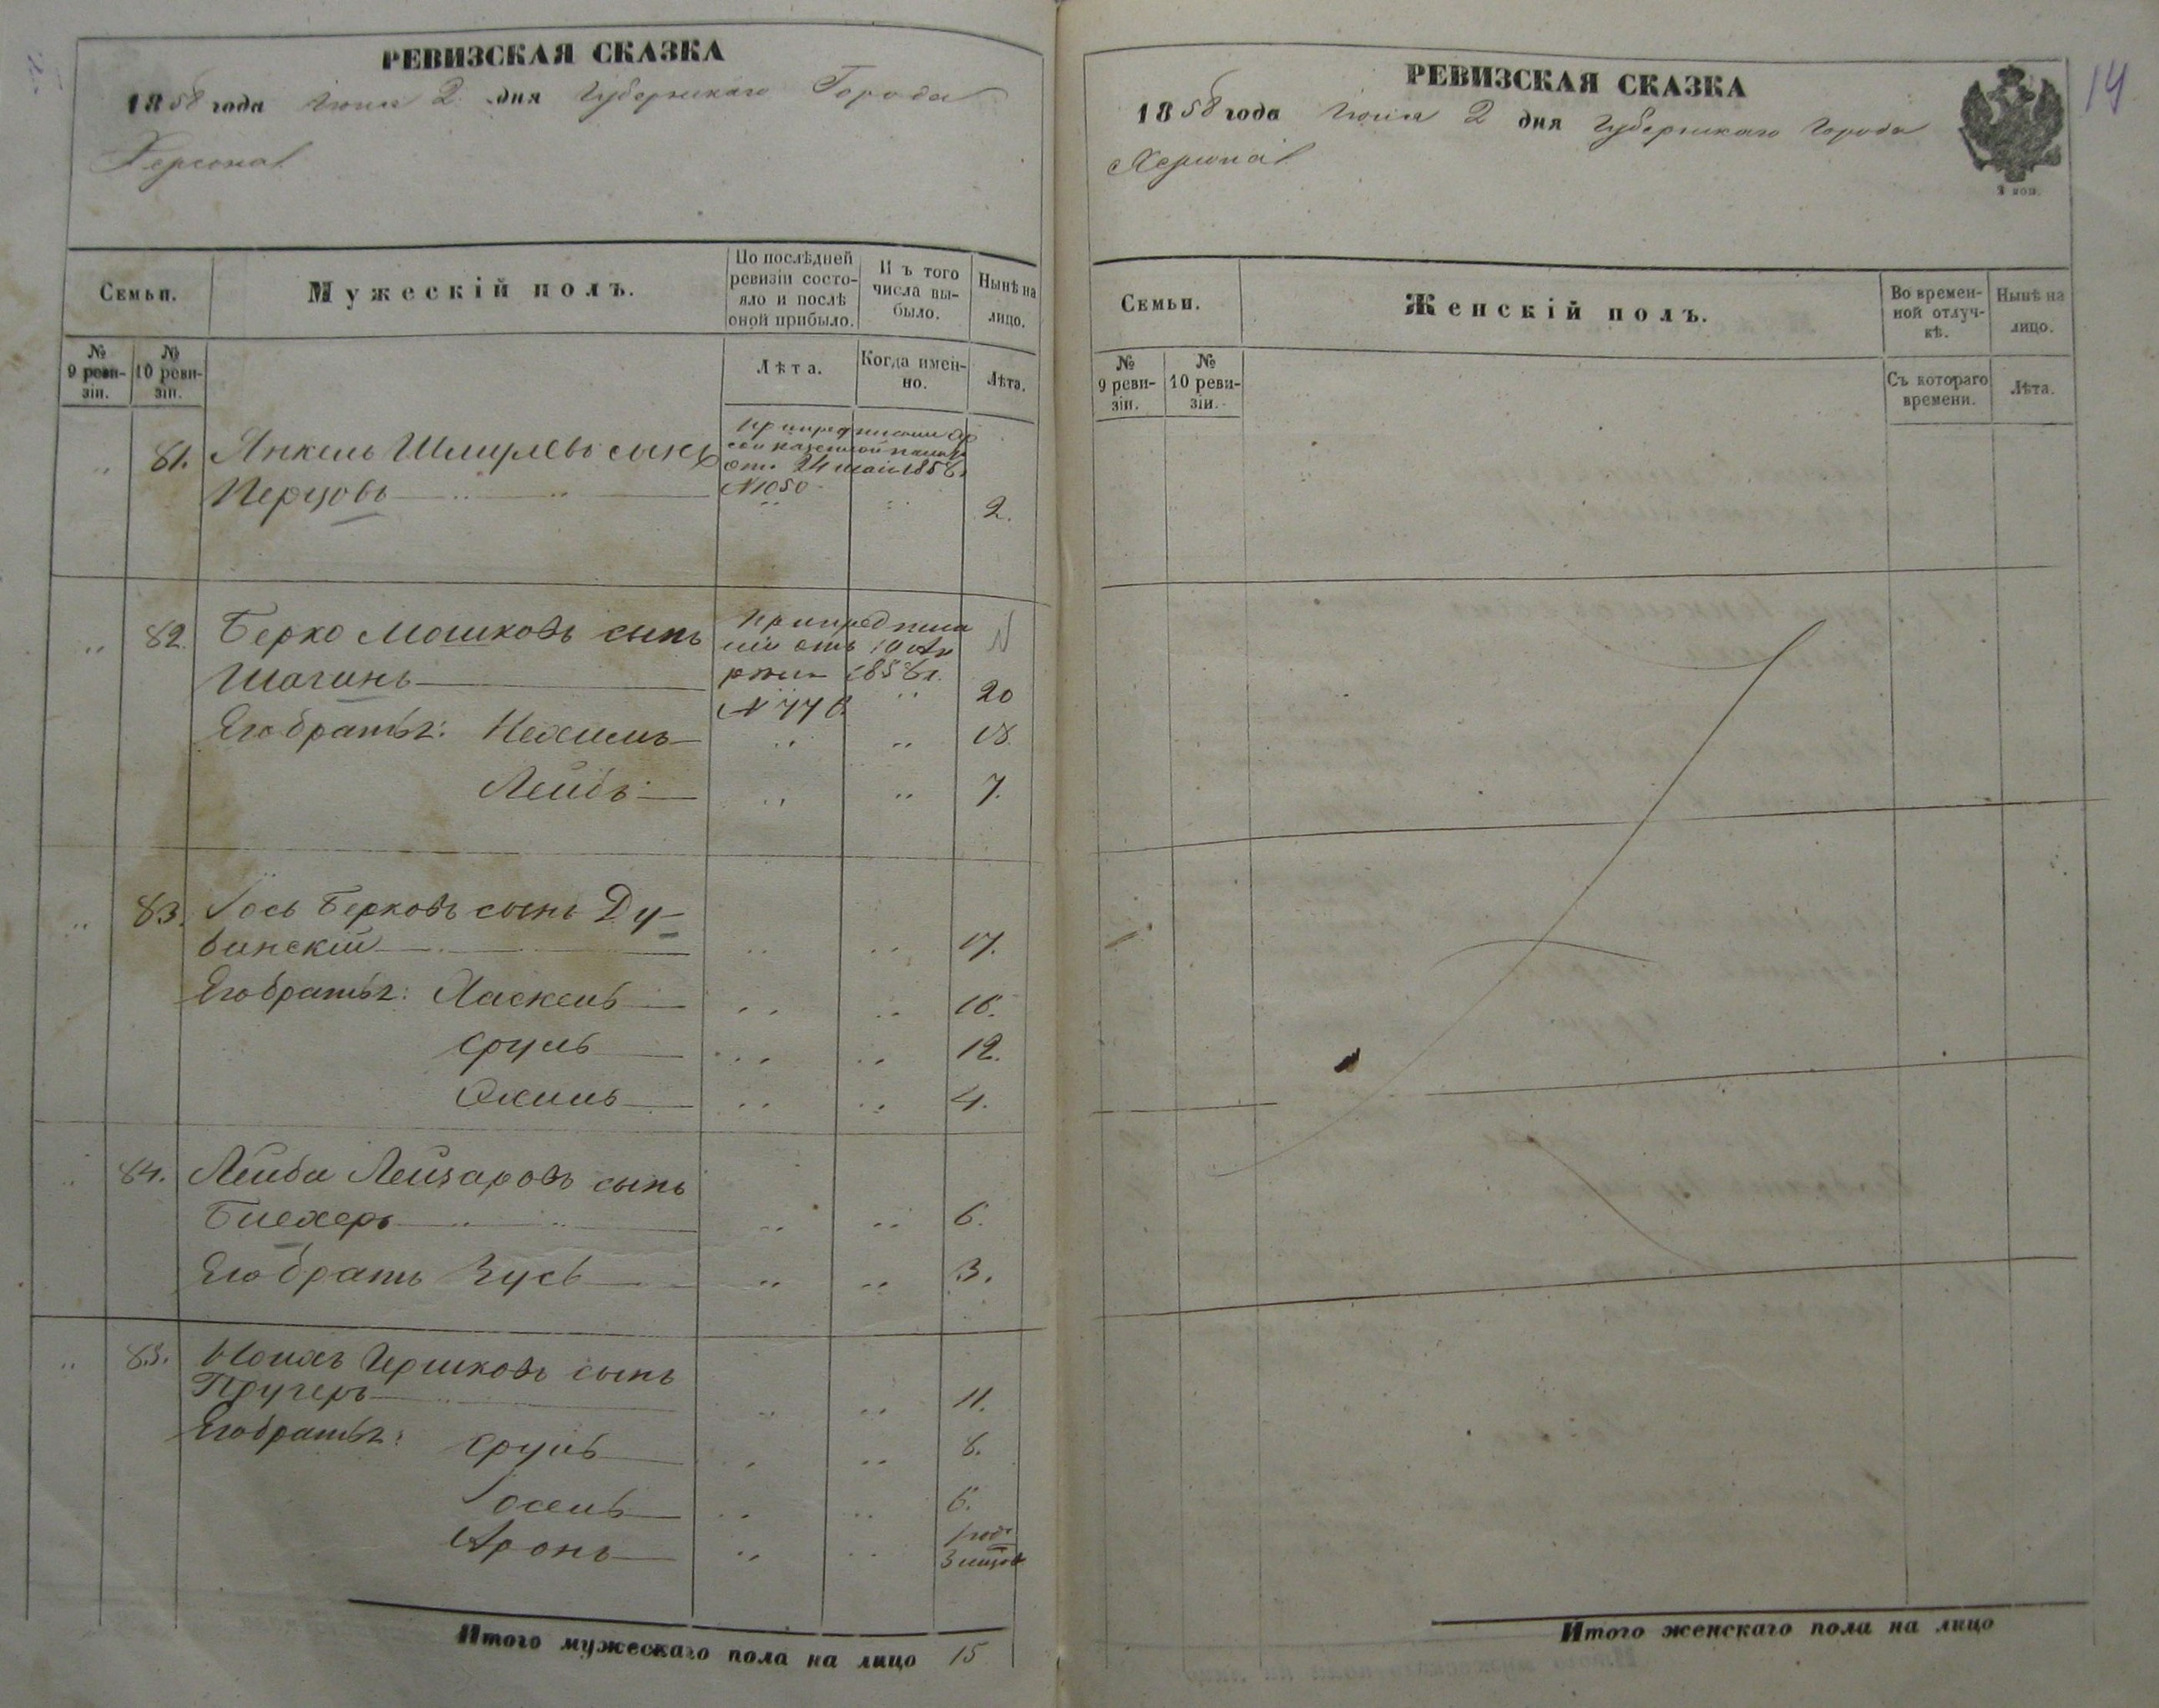 РЕВИЗСКАЯ СКАЗКА
1858 года Іюня 2 дня Губернскаго Города
Херсона
Семьи.
Мужескій полъ.
По послѣдней ревизіи состо-
яло и послѣ оной прибыло.
Изъ того числа вы-
было.
Нынѣ на лицо.
№ 9 реви-
зіи.
№ 10 реви-
зіи.
Лѣта.
Когда имен-
но.
Лѣта.
" 81. Янкель Шмулевъ сынъ
Перцовъ 2.
отъ 24 мая 1858
№ 1050
" 82. Берко Мошковъ сынъ
Шагинъ " 20
1858 г.
Его братья: Нехимъ " " 18.
Лейбъ " " 7.
" 83. Іось Берковъ сынъ Ду-
бинскій " " 17.
Его братья: Хаскель " " 16.
Сруль " " 12.
Охимъ " " 4.
" 84. Лейба Лейзаровъ сынъ
Бихеръ " " 6.
Его братъ Зусь " " 3.
" 85. Моихъ Иршковъ сынъ
Пругеръ " " 11.
Его братья: Сруль " " 8.
Іосель " " 6.
Аронъ " " 1 годъ
3 мцов
Итого мужескаго пола на лицо 15
14
РЕВИЗСКАЯ СКАЗКА
1858 года Іюня 2 дня Губернскаго Города
Херсона
3 коп.
Семьи.
Женскій полъ.
Во времен-
ной отлуч-
кѣ.
Нынѣ на лицо.
№ 9 реви-
зіи.
№ 10 реви-
зіи.
Съ котораго времени.
Лѣта.
Итого женскаго пола на лицо